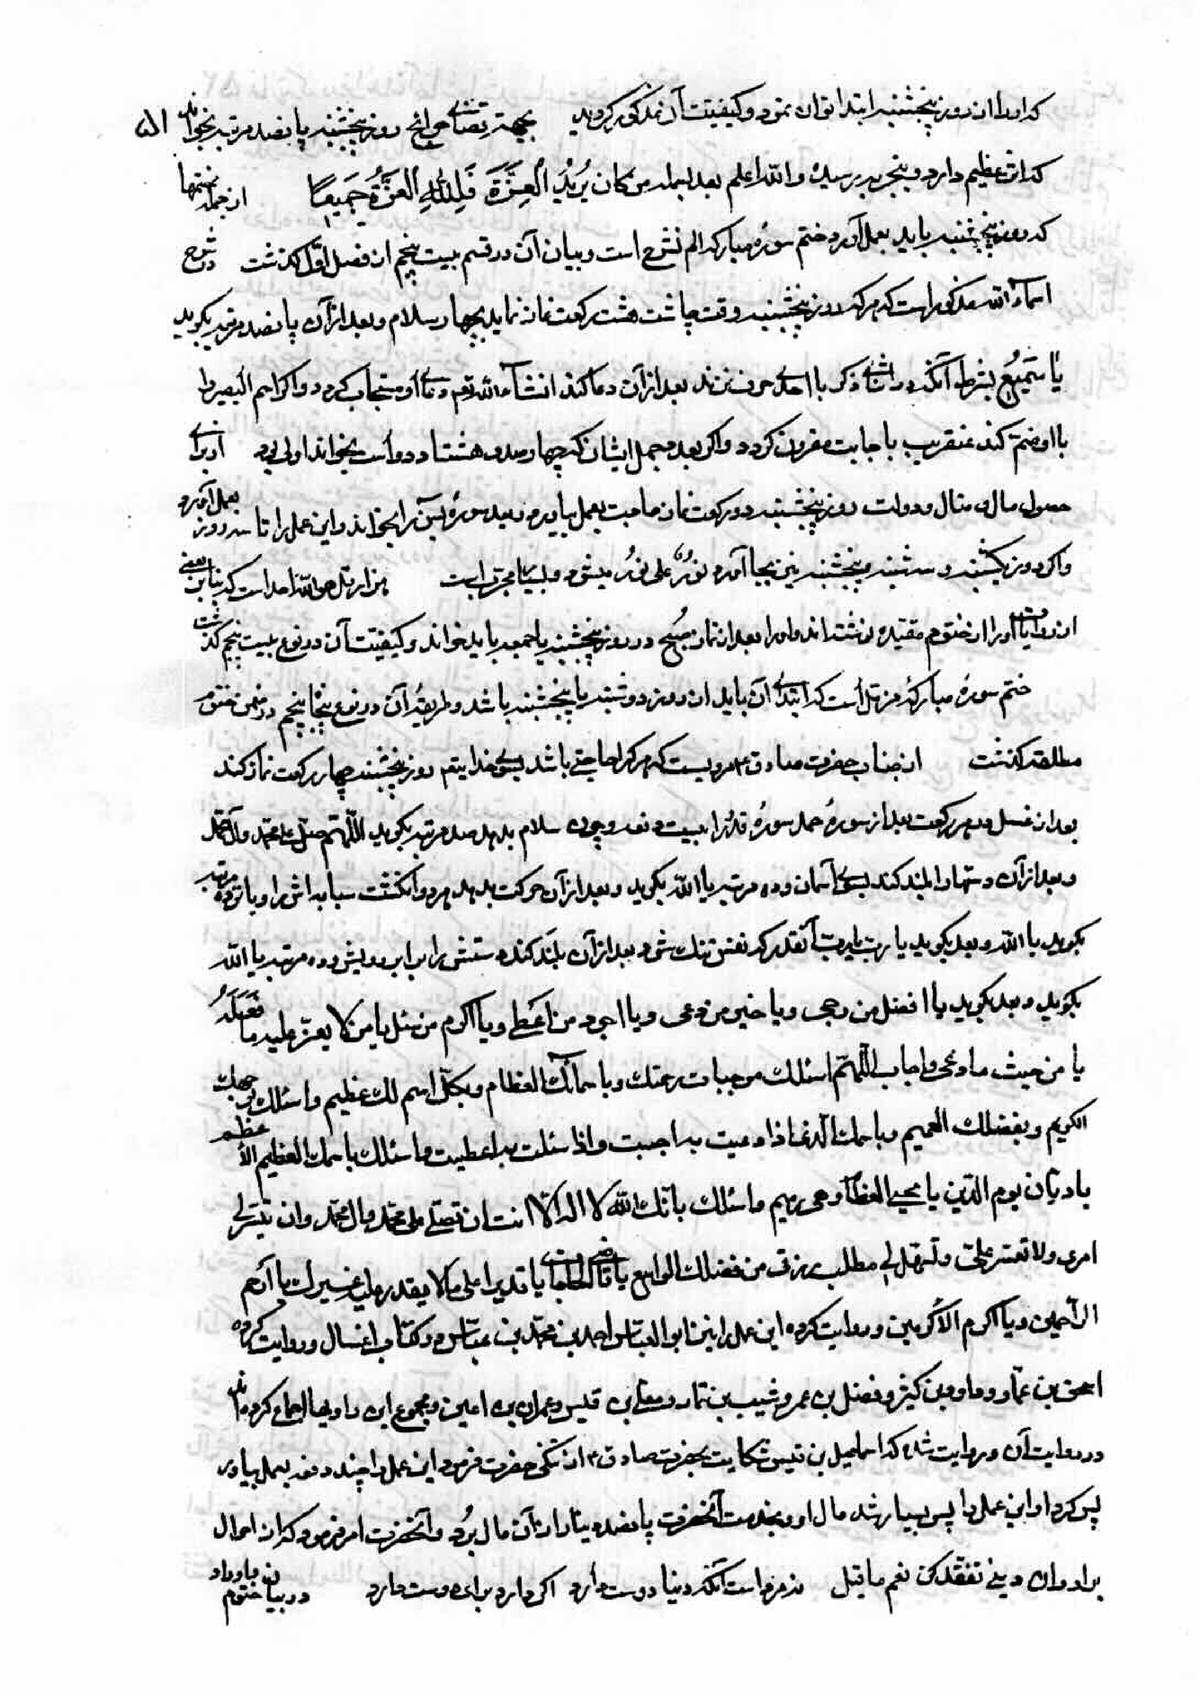 که او را از روز پنجشنبه ابتدا توان نمود و کیفیت آن مذکور گردید بجهة قضای حوائج روز پنجشنبه پانصد مرتبه بخواند
که اثر عظیم دارد و بتجربه رسیده والله اعلم بعد ابجد من کان یرید العزة فلله العزة جمیعا از جمله ختمها
که روز پنجشنبه باید بعمل آورد ختم سوره مبارکه الم نشرح است و بیان آن در قسم بیست پنجم از فصل اول گذشت در شرح
اسماء الله مذکور است که هر که روز پنجشنبه وقت چاشت هشت رکعت نماز نماید بچهار سلام و بعد از آن پانصد مرتبه بگوید
یا سمیع بشرط آنکه در اثنای ذکر با احدی حرف نزند بعد از آن دعا کند انشاء الله تعم دعای او مستجاب گردد و اگر اسم البصیر را
با او ضم کند عنقریب باجابت مقرون گردد و اگر بعدد مجمل ایشان که چهارصد و هشتاد و دو است بخواند اولی بود از برای
حصول مال و منال و دولت روز پنجشنبه دو رکعت نماز حاجت بعمل بیاورد و بعد سوره یس را بخواند و این عمل را تا سه روز بعمل آورد
و اگر روز یکشنبه و سه شنبه و پنجشنبه نیز بجا آورد نور علی نور میشود و بسیار مجرب است هزار قل هو الله احد است که بنابر بعضی
از روایات او را از ختوم مقیده نوشته‌اند و او را بعد از نماز صبح در روز پنجشنبه یا جمعه باید خواند و کیفیت آن در نوع بیست پنجم گذشت
ختم سوره مبارکه مزمل است که ابتدای آن باید از روز دوشنبه یا پنجشنبه باشد و طریقه آن در نوع پنجاه پنجم در ضمن ختوم
مطلقه گذشت از جناب حضرت صادق ع مرویست که هر که را حاجتی باشد بسوی خدا یتم روز پنجشنبه چهار رکعت نماز کند
بعد از غسل و در هر رکعت بعد از سوره حمد سوره قدر را بیست دفعه و چون سلام بدهد صد مرتبه بگوید اللهم صل علی محمد و آل محمد
و بعد از آن دستها را بلند کند بسوی آسمان و ده مرتبه یا الله بگوید و بعد از آن حرکت بدهد هر دو انگشت سبابه اش را و باز ده مرتبه
بگوید یا الله و بعد بگوید یا رب یا رب آنقدر که نفس تنگ شود بعد از آن بلند کند دستش را برابر رویش و ده مرتبه یا الله
بگوید و بعد بگوید یا افضل من رجی و یا خیر من دعی و یا اجود من اعطی و یا اکرم من سئل یا من لا یعز علیه ما فعله
یا من حیث ما دعی اجاب اللهم اسئلک موجبات رحمتک و باسمائک العظام و بکل اسم لک عظیم و اسئلک بوجهک
الکریم و بفضلک العمیم و باسمک الذی اذا دعیت به اجبت و اذا سئلت به اعطیت و اسئلک باسمک العظیم الاعظم
یا دیان یوم الدین یا محیی العظام و هی رمیم و اسئلک بانک الله لا اله الا انت ان تصلی علی محمد و آل محمد و ان تیسر لی
امری و لا تعسر علی و تسهل لی مطلب رزقی من فضلک الواسع یا قاضی الحاجات یا قدیرا علی ما لا یقدر علیه غیرک یا ارحم
الراحمین و یا اکرم الاکرمین و روایت کرده این عمل را نیز ابو العباس احمد بن محمد بن عباس در کتاب اغسال و روایت کرده
اسحق بن عمار و داود بن کثیر و فضل بن عمر و شعیب بن تمار و معلی بن قیس و عمران بن اعین و مجموع این راویها اجماع کرده‌اند
در روایت آن و روایت شده که اسماعیل بن قیس شکایت بحضرت صادق ع از تنگی حضرت فرمود این عمل را چند دفعه بعمل بیاور
پس کرد او این عمل را پس بسیار شد مال او و بخدمت آنحضرت پانصد دینار از آن مال برد و آنحضرت امر فرمود که از احوال
برادران دینی تفقد کن نعم ما قیل نه مرد است آنکه دنیا دوست دارد اگر دارد برای دوست دارد در بیان ختوم و اوراد